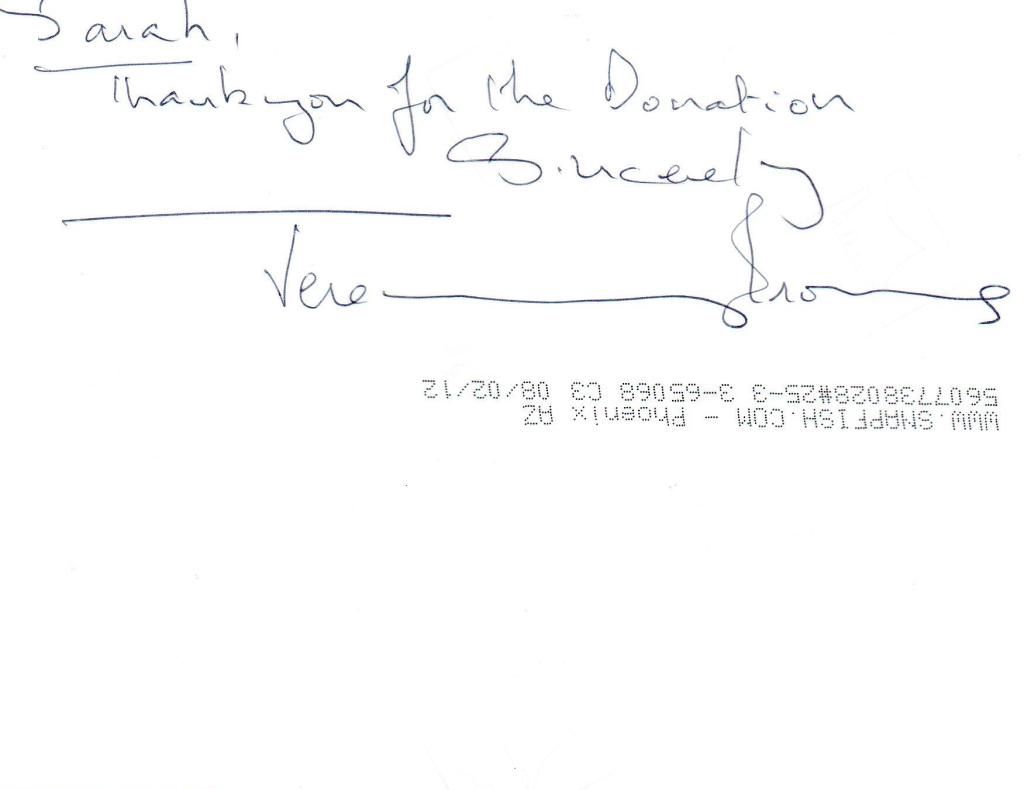 Sarah,
Thank you for the Donation
Sincerely
WWW.SNAPFISH.COM - Phoenix AZ
5607738028#25-3 3-65068 C3 08/02/12